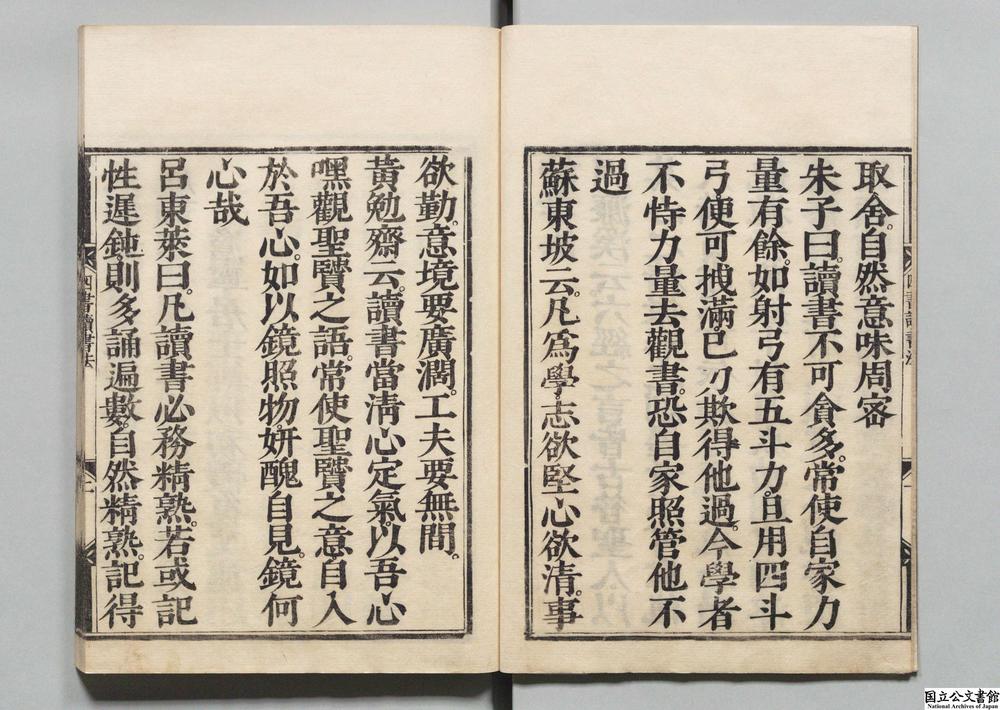 取舍。自然意味周密
朱子曰。讀書不可貪多。常使自家力
量有餘。如射弓有五斗力。且用四斗
弓。便可拽滿。己力欺得他過。今學者
不恃力量去觀書。恐自家照管他不
過
蘇東坡云。凡爲學。志欲堅。心欲清。事
欲勤。意境要廣濶。工夫要無間。
黃勉齋云。讀書當淸心定氣。以吾心
嘿觀聖贒之語。常使聖贒之意自入
於吾心。如以鏡照物。妍醜自見。鏡何
心哉
呂東萊曰。凡讀書必務精熟。若或記
性遲鈍。則多誦遍數。自然精熟。記得
四書讀書法
四書讀書法
国立公文書館
National Archives of Japan